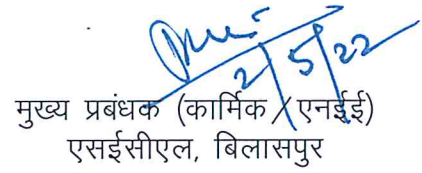 2/5/22
मुख्य प्रबंधक (कार्मिक / एनईई)
एसईसीएल, बिलासपुर